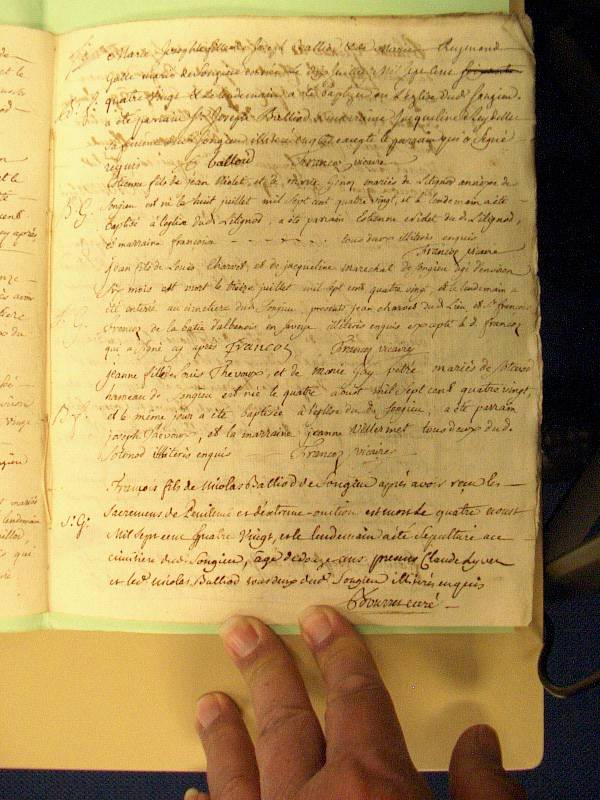 Marie Josephte fille de Joseph Balliod et de Marie Reymond
mariés de Songieu est née le dix juillet mil sept cent soixante
B. G. quatre vingt & le lendemain a été baptisée en l'église dud. Songieu.
a été parrain Sr Joseph Balliod & marraine Jacqueline
sa femme dud. Songieu illitéré enquis excepté le parrain qui a signé
requis J. balliod Francoz vicaire
Etienne fils de jean Violet, et de marie Genoz mariés de Lilignod annexe de
B. G. Songieu est né le huit juillet mil sept cent quatre vingt, et le lendemain a été
baptisé à l'église dud. Lilignod, a été parrain Etienne violet du d. Lilignod,
et marraine francoise - - - tous deux illitérés enquis
Francoz vicaire
jean fils de Louis Charvet, et de jacqueline marechal de songieu agé d'environ
mois est mort le treize juillet mil sept cent quatre vingt, et le lendemain a
S. G. été enterré au cimetière dud. Songieu, presents jean charvet dud. Lieu et Sr francois
francoz de la batie d'albenois en savoye illitéré enquis excepté le d. francoz
qui a signé cy après francoz Francoz vicaire
jeanne fille de Thevenoz, et de marie Gay petre mariés de Sotonod
hameau de Songieu est née le quatre aoust mil sept cent quatre vingt,
B. G. et le même jour a été baptisée à leglise du d. songieu, a été parrain
joseph Thevenoz, et la marraine jeanne Vullermet tous deux du d.
Sotonod illitérés enquis Francoz vicaire
François fils de Nicolas Balliod de Songieu après avoir reçu les
Sacremens de Penitence et d'extrême-onction est mort le quatre aoust
S. G. Mil sept cent Quatre Vingt, et le lendemain a été Sepulturé au
cimitière dud. Songieu, agé de douze ans presens Claude Lyvet
et led. nicolas Balliod tous deux dud. Songieu illitérés enquis
curé